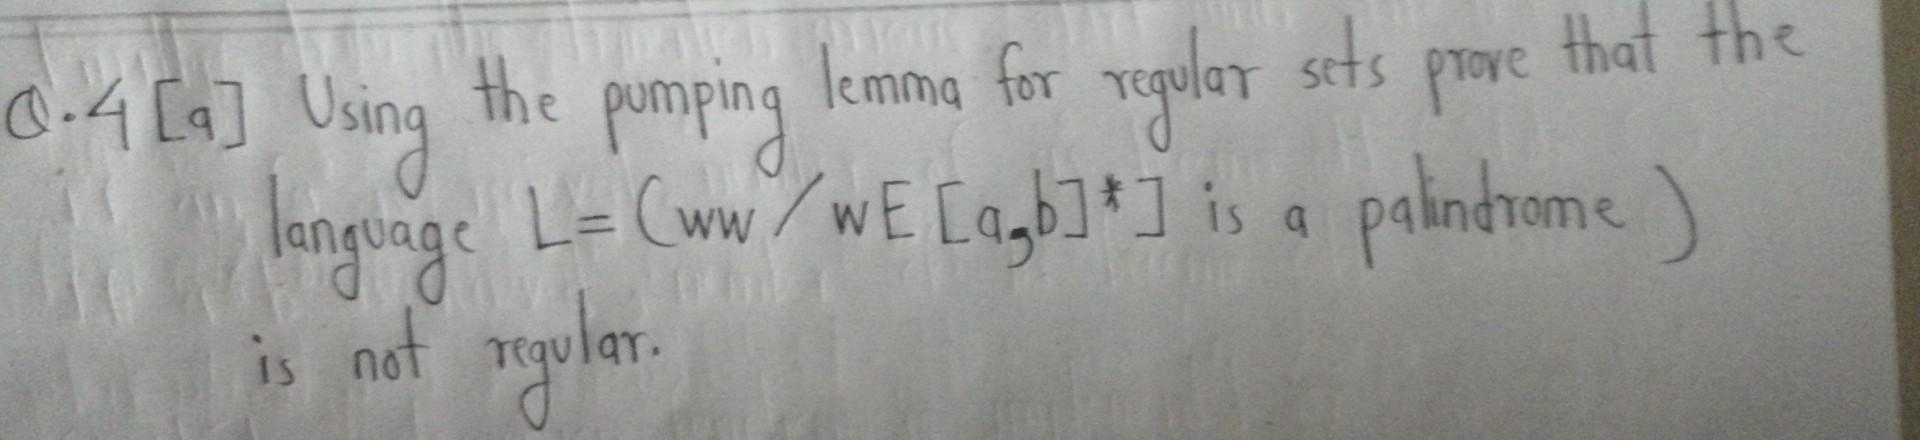 Q.4 [a] Using the pumping lemma for regular sets prove that the
language L= (ww / wE [a,b]*] is a palindrome )
is not regular.